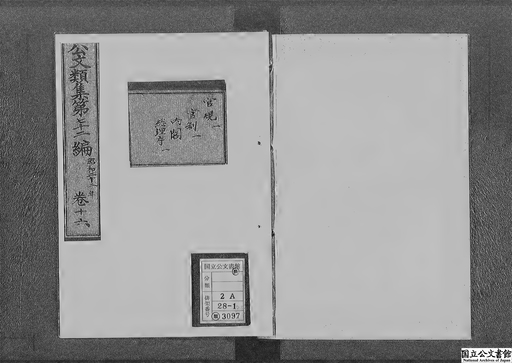 公文類集第七十二編 昭和二十二年 巻十六
官規一
官制一
内閣
総理庁一
国立公文書館
分類
排架番号
2 A
28-1
3097
国立公文書館
National Archives of Japan